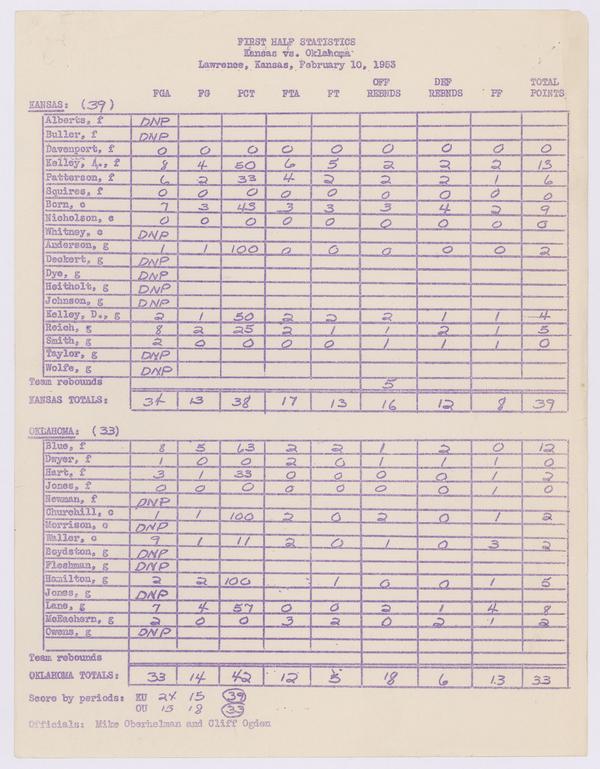 FIRST HALF STATISTICS
Kansas vs. Oklahoma
Lawrence, Kansas, February 10, 1953
FGA FG PCT FTA FT OFF REBNDS DEF REBNDS PF TOTAL POINTS
KANSAS: (39)
Alberts, f DNP
Buller, f DNP
Davenport, f 0 0 0 0 0 0 0 0 0
Kelley, A., f 8 4 50 6 5 2 2 2 13
Patterson, f 6 2 33 4 2 2 2 1 6
Squires, f 0 0 0 0 0 0 0 0 0
Born, c 7 3 43 3 3 3 4 2 9
Nicholson, c 0 0 0 0 0 0 0 0 0
Whitney, c DNP
Anderson, g 1 1 100 0 0 0 0 0 2
Deckert, g DNP
Dye, g DNP
Heitholt, g DNP
Johnson, g DNP
Kelley, D., g 2 1 50 2 2 2 1 1 4
Reich, g 8 2 25 2 1 1 2 1 5
Smith, g 2 0 0 0 0 1 1 1 0
Taylor, g DNP
Wolfe, g DNP
Team rebounds 5
KANSAS TOTALS: 34 13 38 17 13 16 12 8 39
OKLAHOMA: (33)
Blue, f 8 5 63 2 2 1 2 0 12
Dwyer, f 1 0 0 2 0 1 1 1 0
Hart, f 3 1 33 0 0 0 0 1 2
Jones, f 0 0 0 0 0 0 0 1 0
Newman, f DNP
Churchill, c 1 1 100 2 0 2 0 1 2
Morrison, c DNP
Waller, c 9 1 11 2 0 1 0 3 2
Boydston, g DNP
Fleshman, g DNP
Hamilton, g 2 2 100 1 0 0 1 5
Jones, g DNP
Lane, g 7 4 57 0 0 2 1 4 8
McEachern, g 2 0 0 3 2 0 2 1 2
Owens, g DNP
Team rebounds
OKLAHOMA TOTALS: 33 14 42 12 5 18 6 13 33
Score by periods: KU 24 15 39
OU 15 18 33
Officials: Mike Oberhelman and Cliff Ogden